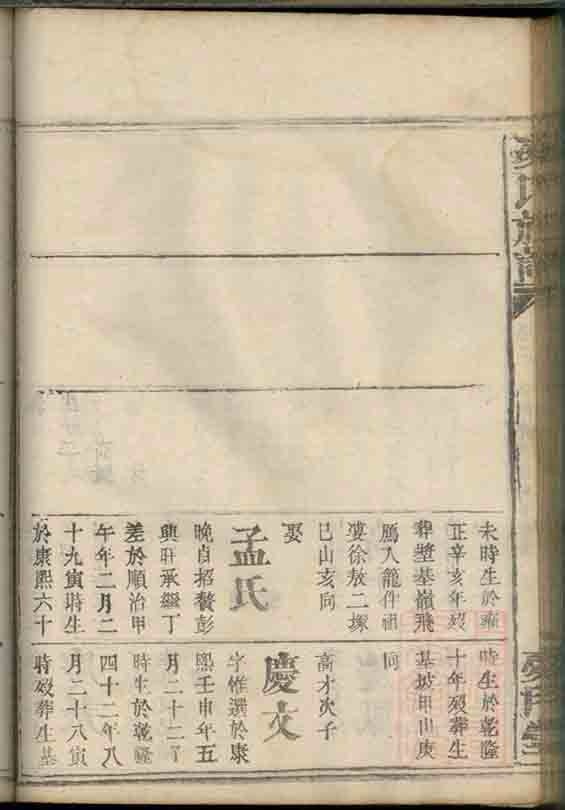 未時生於雍
正辛亥年歿
葬塋基嶺飛
鴈入籠件祖
婆徐敖二塚
巳山亥向
娶
孟氏
晚貞招贅彭
興旺承繼丁
差於順治甲
午年二月二
十九寅時生
於康熙六十
時生於乾隆
十年歿葬生
基坡甲山庚
向
高才次子
慶文
字惟選於康
熙壬申年五
月二十二丁
時生於乾隆
四十二年八
月二十八寅
時歿葬生基